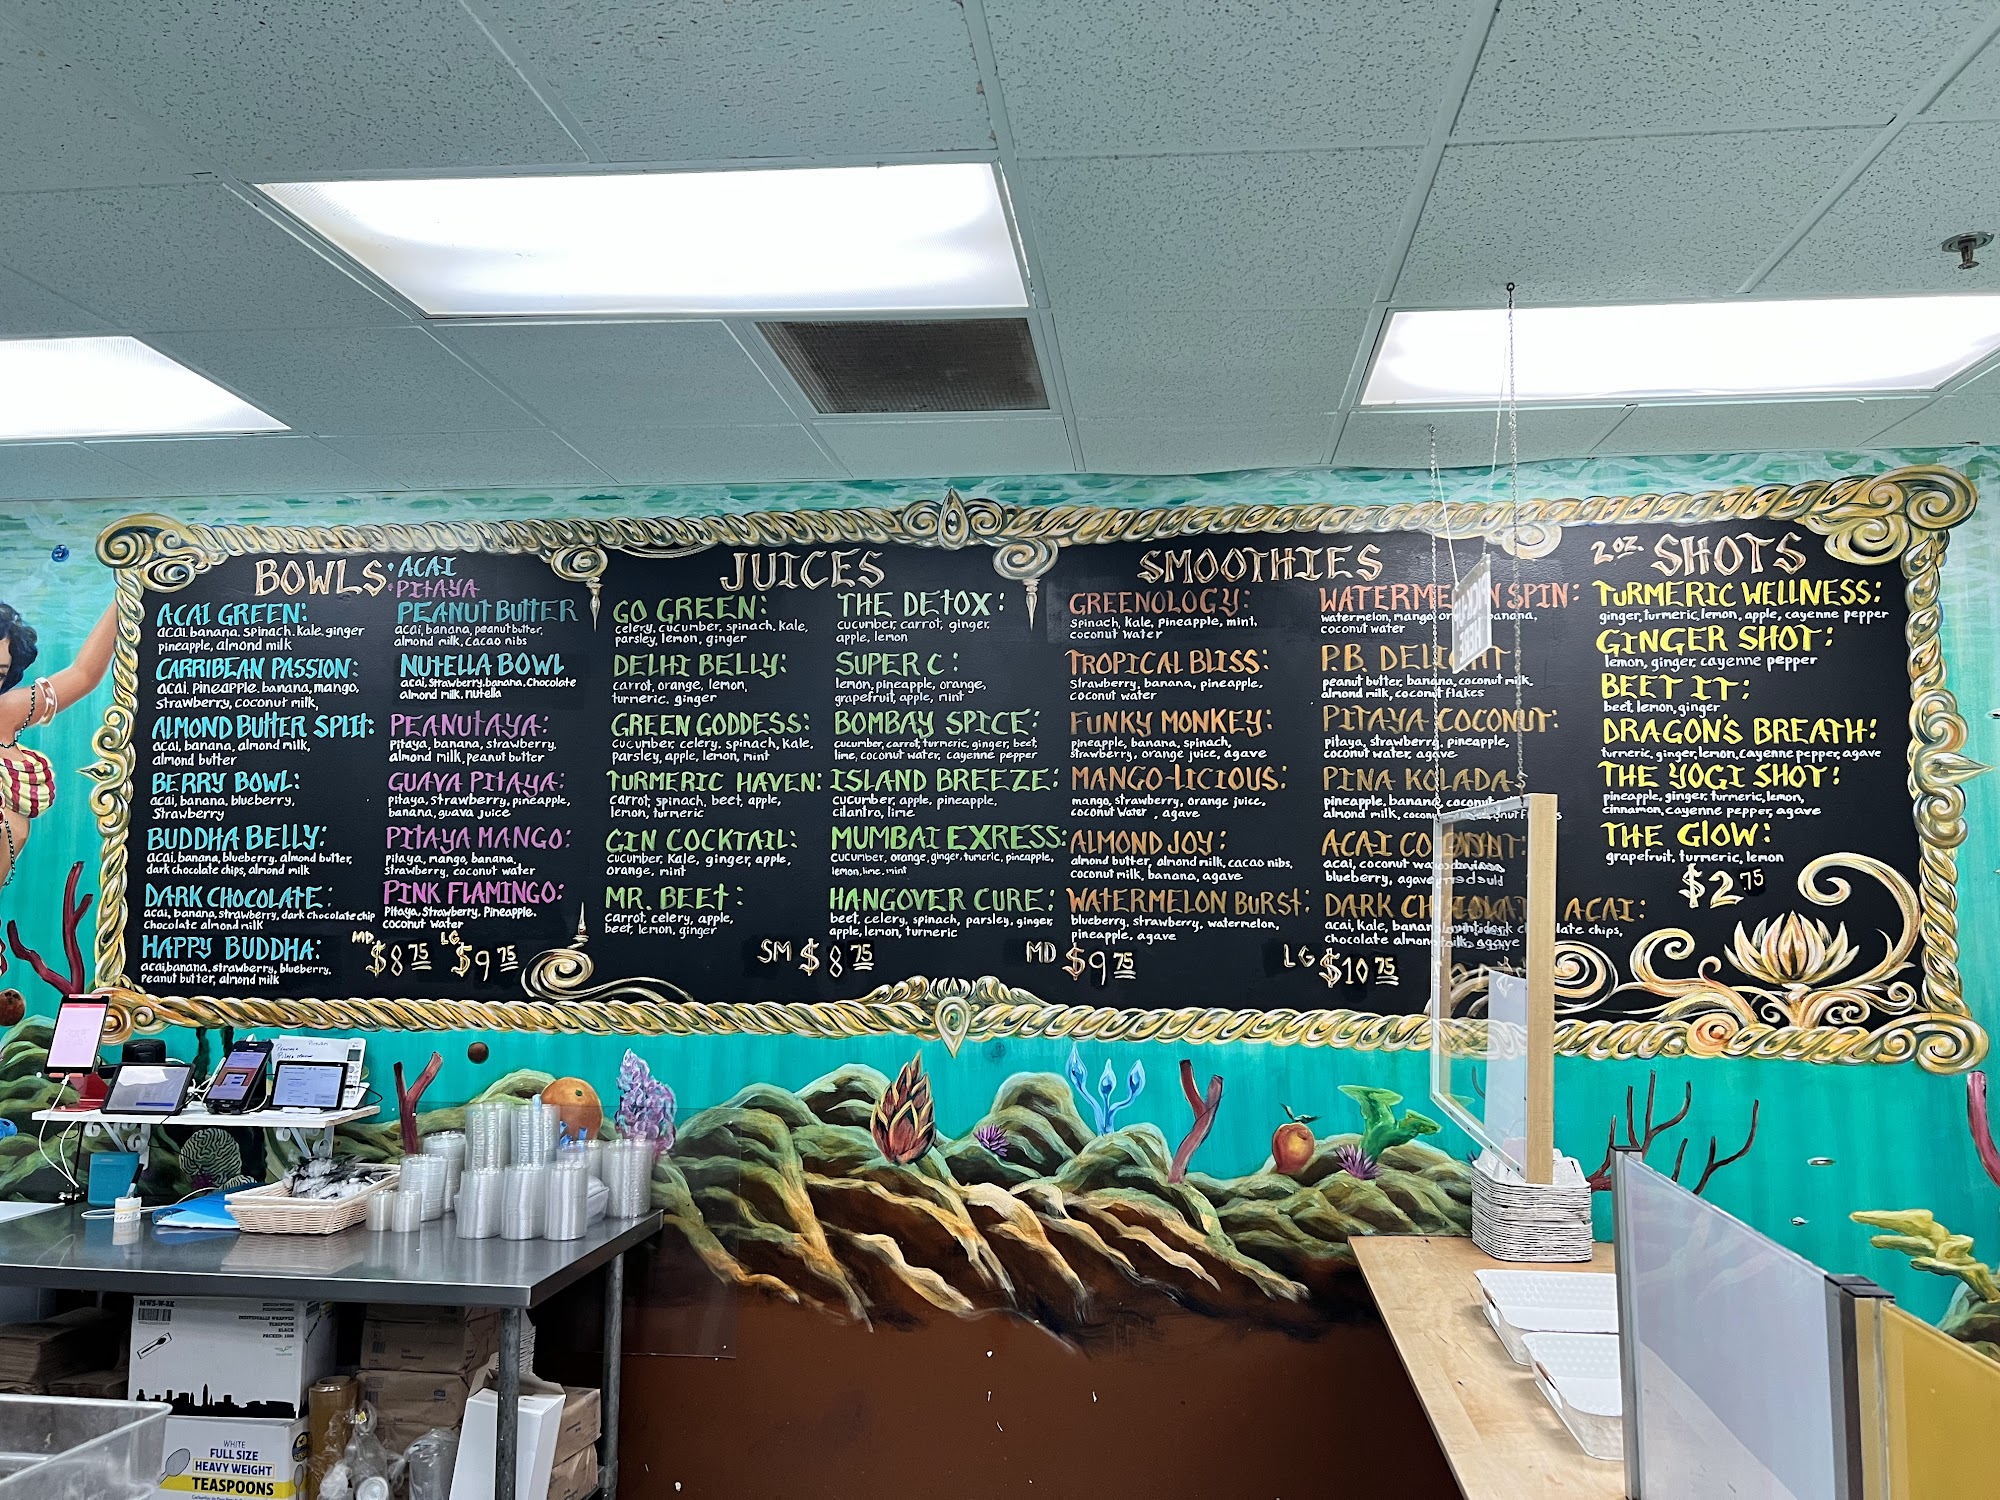 BOWLS
ACAI
PITAYA
ACAI GREEN:
acai, banana, spinach, kale, ginger
pineapple, almond milk
CARRIBEAN PASSION:
acai, pineapple, banana, mango,
strawberry, coconut milk,
ALMOND BUTTER SPLIT:
acai, banana, almond milk,
almond butter
BERRY BOWL:
acai, banana, blueberry,
strawberry
BUDDHA BELLY:
acai, banana, blueberry, almond butter,
dark chocolate chips, almond milk
DARK CHOCOLATE:
acai, banana, strawberry, dark chocolate chip
chocolate almond milk
HAPPY BUDDHA:
acai, banana, strawberry, blueberry,
Peanut butter, almond milk
PEANUT BUTTER
acai, banana, peanut butter,
almond milk, cacao nibs
NUTELLA BOWL
acai, strawberry, banana, chocolate
almond milk, nutella
PEANUTAYA:
pitaya, banana, strawberry,
almond milk, peanut butter
GUAVA PITAYA:
pitaya, strawberry, pineapple,
banana, guava juice
PITAYA MANGO:
pitaya, mango, banana,
strawberry, coconut water
PINK FLAMINGO:
Pitaya, Strawberry, Pineapple,
coconut water
MD $8 75 LG $9 75
JUICES
GO GREEN:
celery, cucumber, spinach, kale,
parsley, lemon, ginger
DELHI BELLY:
carrot, orange, lemon,
turmeric, ginger
GREEN GODDESS:
cucumber, celery, spinach, kale,
parsley, apple, lemon, mint
TURMERIC HAVEN:
carrot, spinach, beet, apple,
lemon, turmeric
GIN COCKTAIL:
cucumber, kale, ginger, apple,
orange, mint
MR. BEET:
carrot, celery, apple,
beet, lemon, ginger
THE DETOX:
cucumber, carrot, ginger,
apple, lemon
SUPER C:
lemon, pineapple, orange,
grapefruit, apple, mint
BOMBAY SPICE:
cucumber, carrot, turmeric, ginger, beet,
lime, coconut water, cayenne pepper
ISLAND BREEZE:
cucumber, apple, pineapple,
cilantro, lime
MUMBAI EXRESS:
cucumber, orange, ginger, tumeric, pineapple,
lemon, lime, mint
HANGOVER CURE:
beet, celery, spinach, parsley, ginger,
apple, lemon, turmeric
SM $8 75
SMOOTHIES
GREENOLOGY:
spinach, kale, pineapple, mint,
coconut water
TROPICAL BLISS:
strawberry, banana, pineapple,
coconut water
FUNKY MONKEY:
pineapple, banana, spinach,
strawberry, orange juice, agave
MANGO-LICIOUS:
mango, strawberry, orange juice,
coconut water, agave
ALMOND JOY:
almond butter, almond milk, cacao nibs,
coconut milk, banana, agave
WATERMELON BURST:
blueberry, strawberry, watermelon,
pineapple, agave
MD $9 75
WATERMELON SPIN:
watermelon, mango, banana,
coconut water
P.B. DELIGHT
peanut butter, banana, coconut milk,
almond milk, coconut flakes
PITAYA COCONUT:
pitaya, strawberry, pineapple,
coconut water, agave
PINA KOLADA
pineapple, banana, coconut
almond milk,
ACAI COCONUT:
acai, coconut water
blueberry, agave
DARK CHOCOLATE ACAI:
acai, kale, banana, chips,
chocolate almond milk, agave
LG $10 75
2 oz. SHOTS
TURMERIC WELLNESS:
ginger, turmeric, lemon, apple, cayenne pepper
GINGER SHOT:
lemon, ginger, cayenne pepper
BEET IT:
beet, lemon, ginger
DRAGON'S BREATH:
turmeric, ginger, lemon, cayenne pepper, agave
THE YOGI SHOT:
pineapple, ginger, turmeric, lemon,
cinnamon, cayenne pepper, agave
THE GLOW:
grapefruit, turmeric, lemon
$2 75
TEASPOON
WHITE
FULL SIZE
HEAVY WEIGHT
TEASPOONS